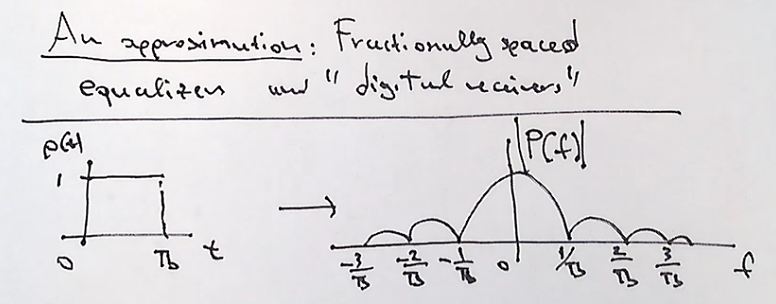 An approximation: Fractionally spaced
equalizers and "digital receivers"
p(t)
1
0
Tb
t
|P(f)|
-3/Tb -2/Tb -1/Tb 0 1/Tb 2/Tb 3/Tb f